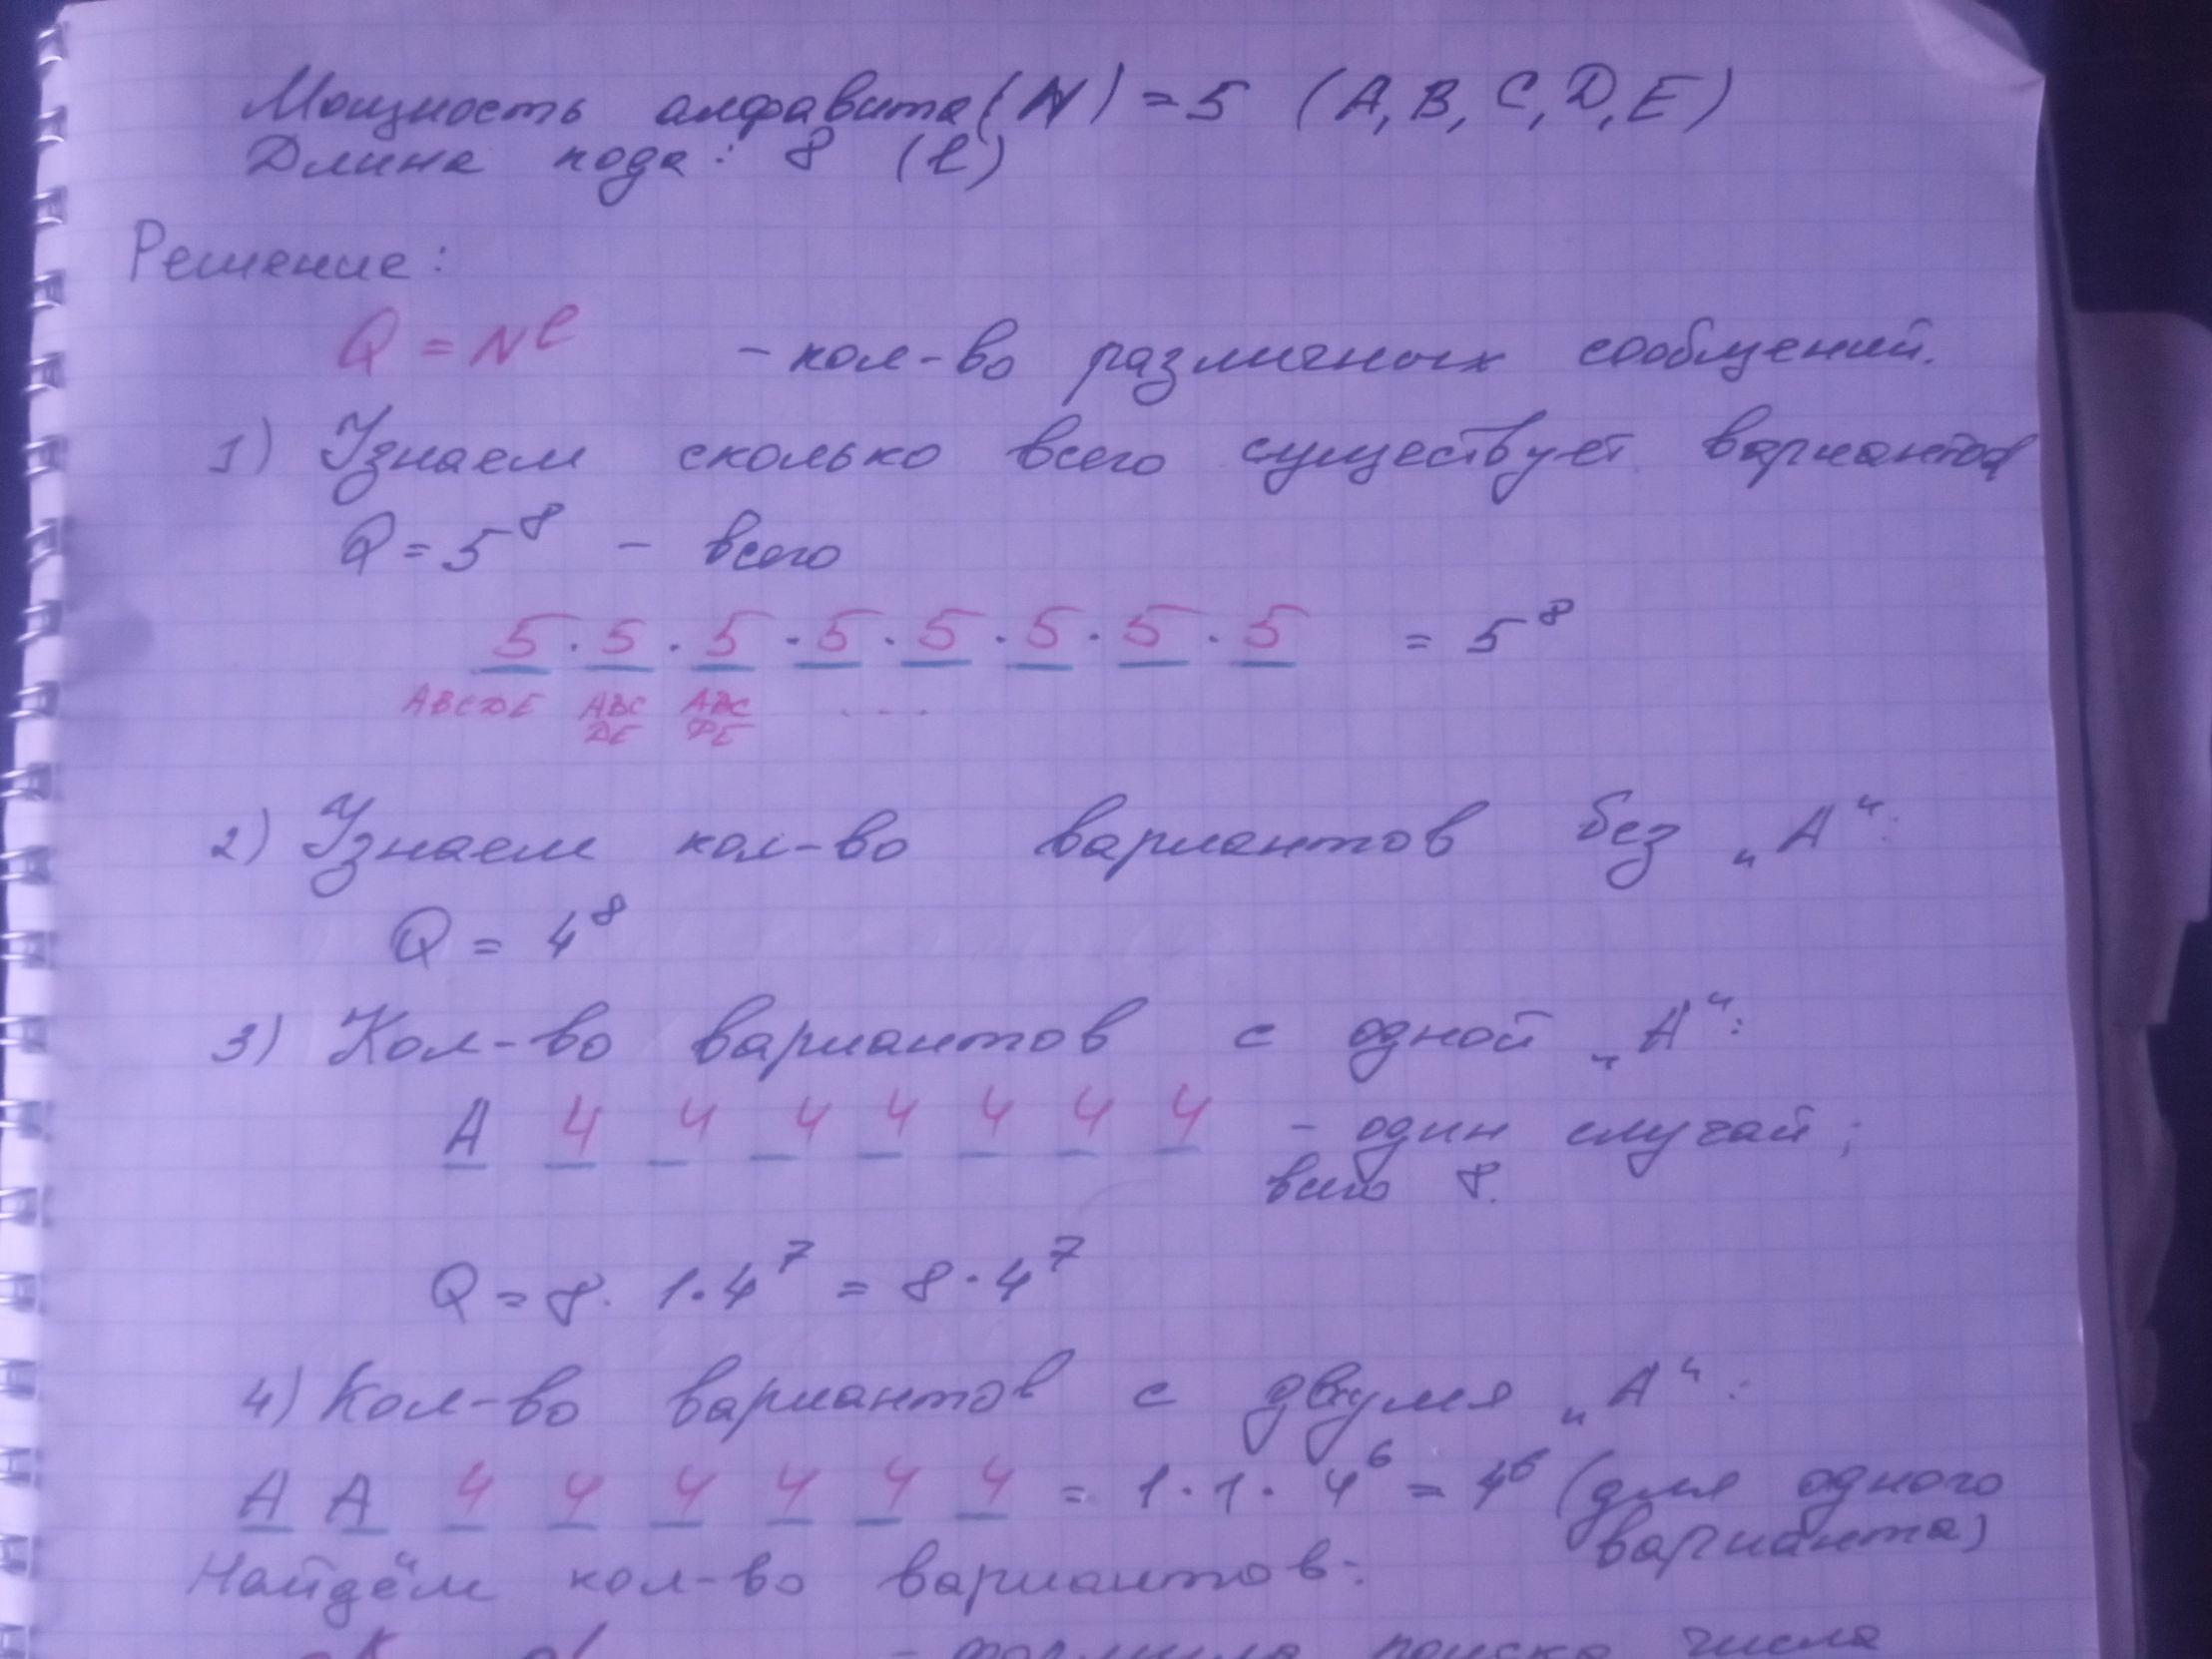 Мощность алфавита (N) = 5 (A, B, C, D, E)
Длина кода: 8 (l)
Решение:
Q = N^l - кол-во различных сообщений.
1) Узнаем сколько всего существует вариантов
Q = 5^8 - всего
5 · 5 · 5 · 5 · 5 · 5 · 5 · 5 = 5^8
ABCDE ABC ABC ...
DE DE
2) Узнаем кол-во вариантов без „A“:
Q = 4^8
3) Кол-во вариантов с одной „A“:
A 4 4 4 4 4 4 4 - один случай;
всего 8.
Q = 8 · 1 · 4^7 = 8 · 4^7
4) Кол-во вариантов с двумя „A“:
A A 4 4 4 4 4 4 = 1 · 1 · 4^6 = 4^6 (для одного
варианта)
Найдём кол-во вариантов:
- формула поиска числа